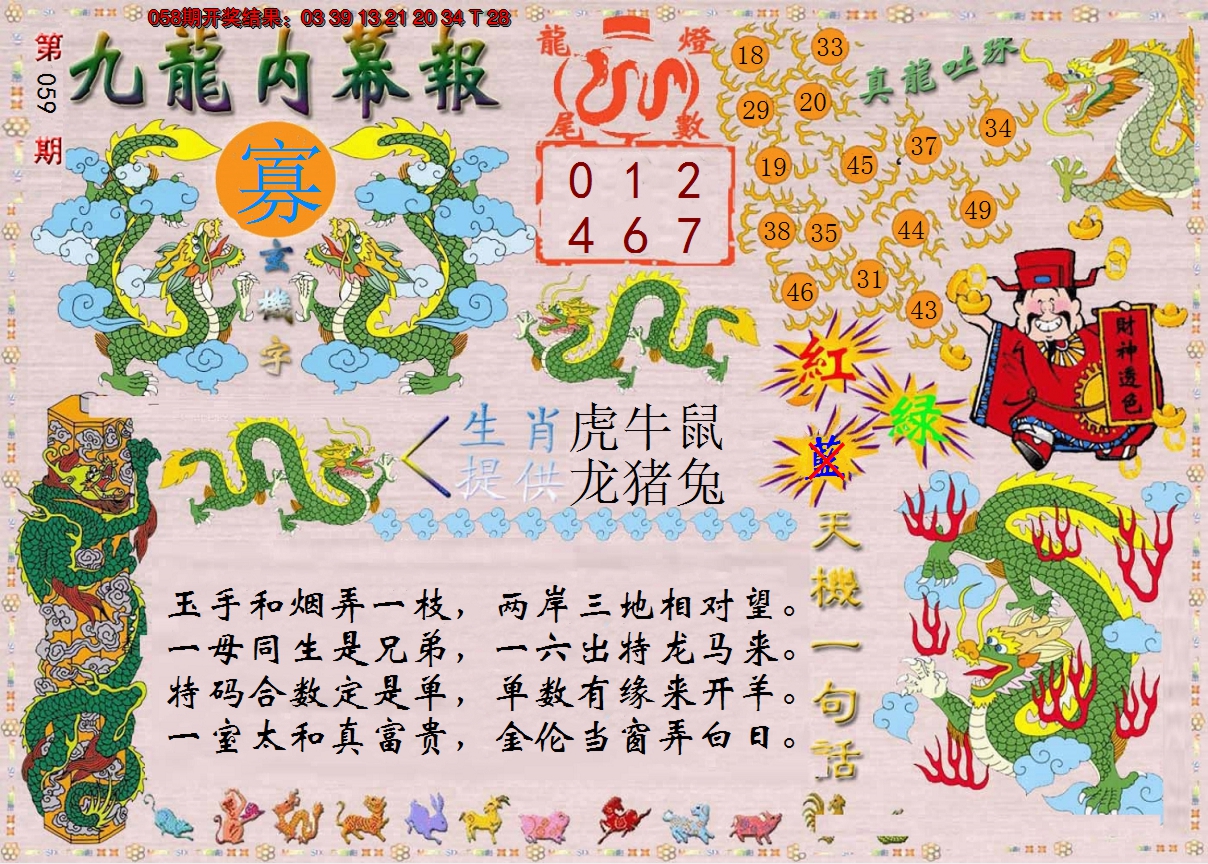 058期开奖结果：03 39 13 21 20 34 T 28
第059期
九龍内幕報
寡
玄機字
龍燈
尾數
0 1 2
4 6 7
真龍吐珠
18 33
29 20
37 34
19 45
49
38 35 44
46 31
43
財神透色
紅
綠
藍
生肖 虎牛鼠
提供 龙猪兔
玉手和烟弄一枝，两岸三地相对望。
一母同生是兄弟，一六出特龙马来。
特码合数定是单，单数有缘来开羊。
一室太和真富贵，金伦当窗弄白日。
天機一句話